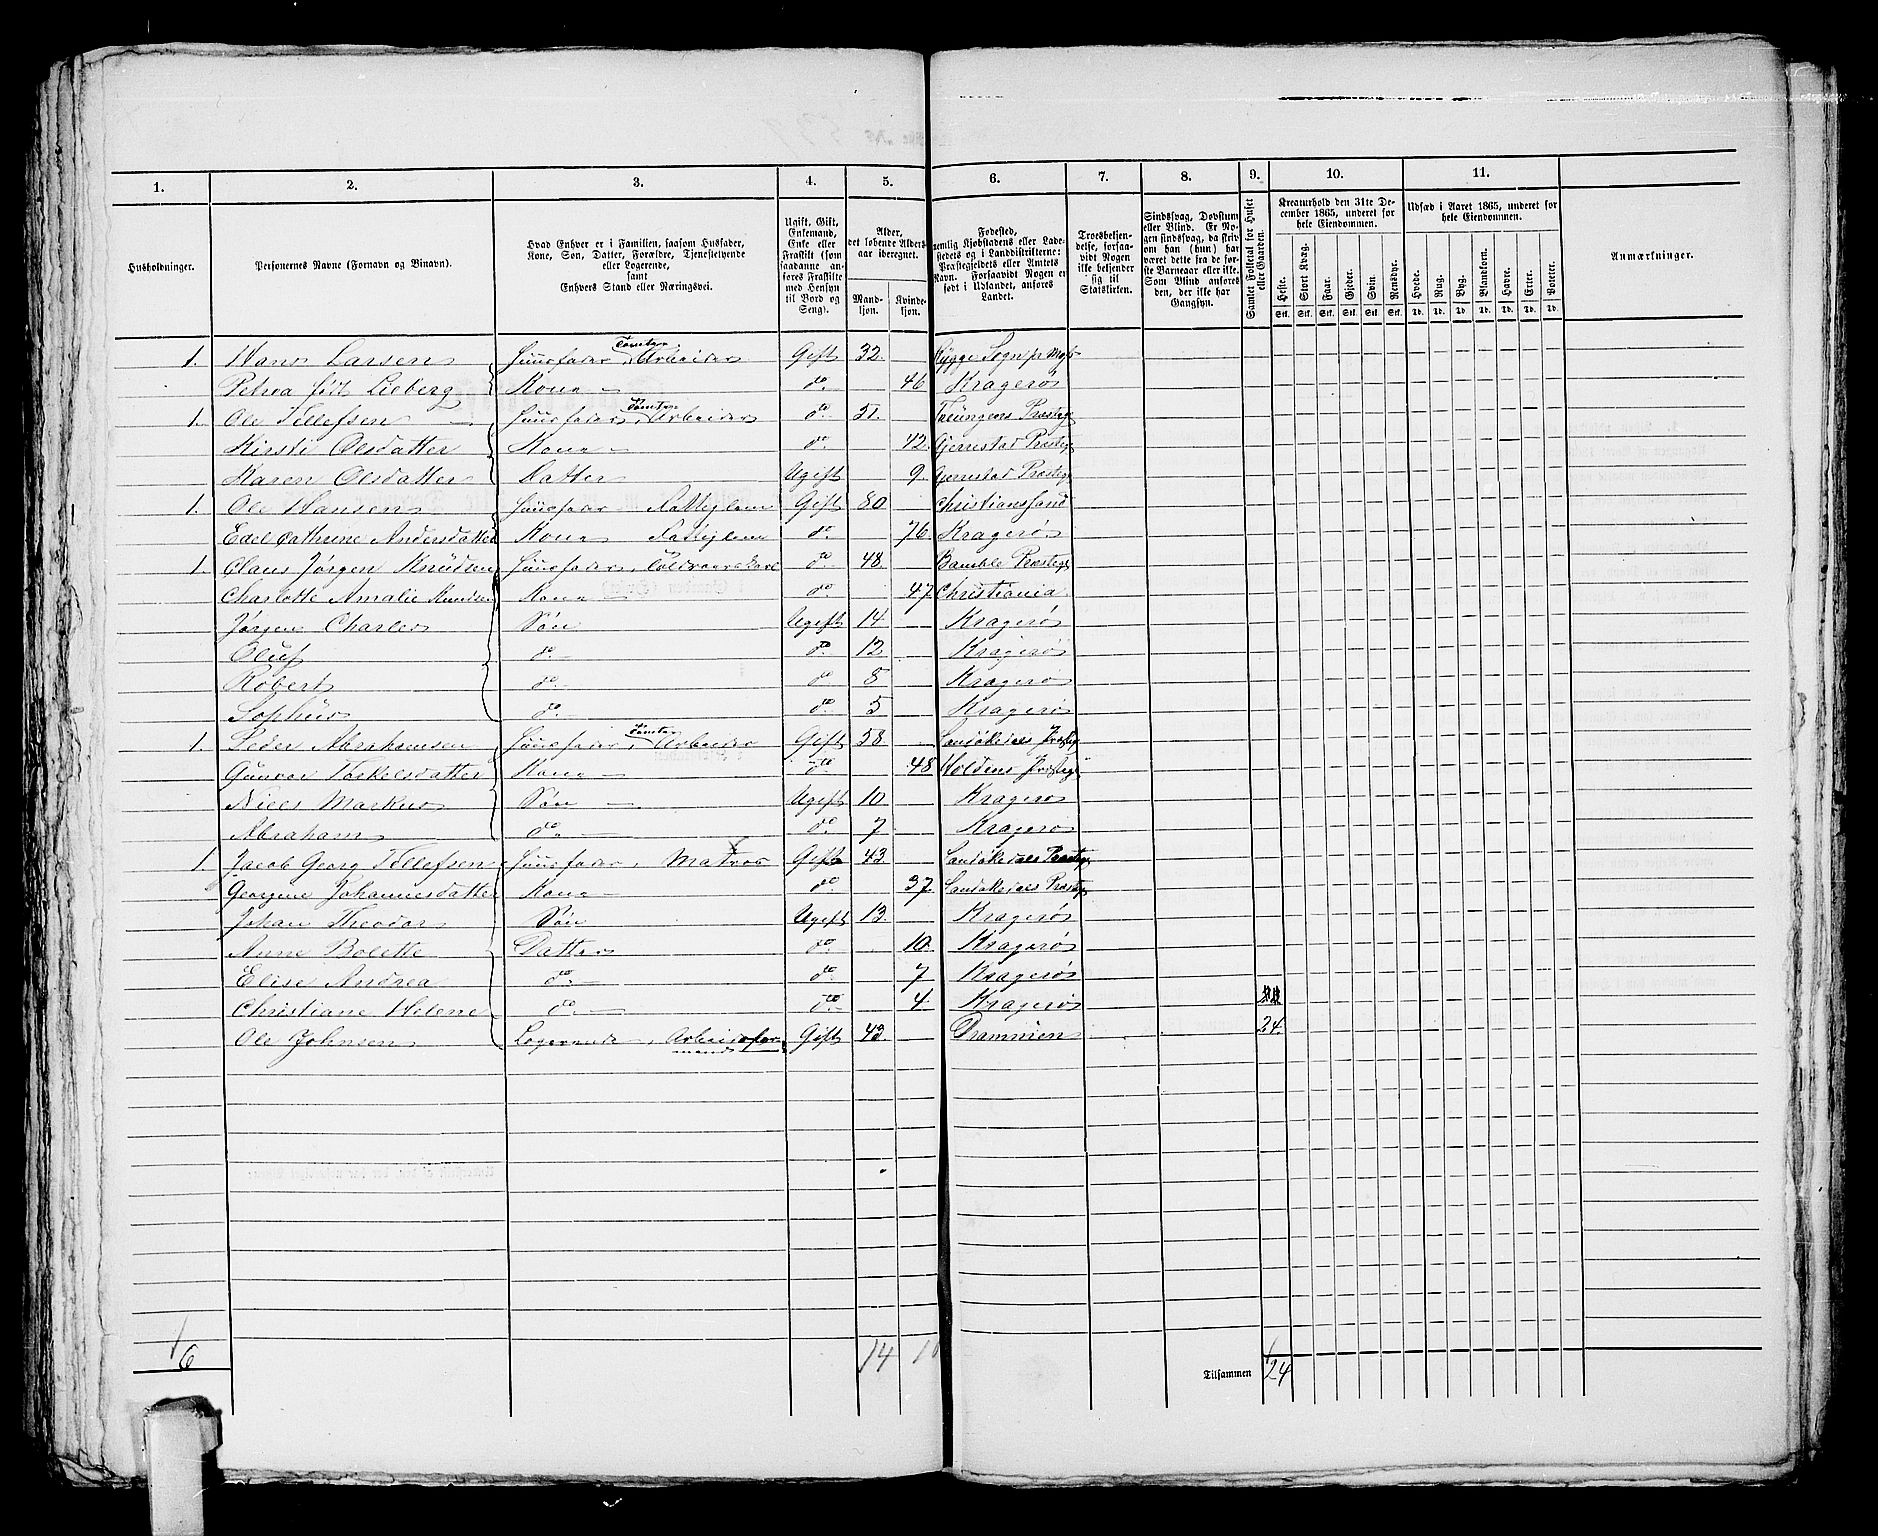 1. 2. 3. 4. 5. 6. 7. 8. 9. 10. 11.
Husholdninger.
Personernes Navne (Fornavn og Binavn).
Hvad Enhver er i Familien, saasom Husfader,
Kone, Søn, Datter, Forældre, Tjenestetyende
eller Logerende,
samt
Enhvers Stand eller Næringsvei.
Ugift, Gift,
Enkemand,
Enke eller
Fraskilt (som
saadanne an-
føres Fraskilte
med Hensyn
til Bord og
Seng).
Alder,
det løbende Alders-
aar iberegnet.
Mand-
kjøn.
Kvinde-
kjøn.
Fødested,
nemlig Kjøbstadens eller Lade-
stedets og i Landdistrikterne:
Præstegjeldets eller Amtets
Navn. Forsaavidt Nogen er
født i Udlandet, anføres
Landet.
Troesbekjen-
delse, forsaa-
vidt Nogen
ikke bekjender
sig til
Statskirken.
Sindssvag, Døvstum
eller Blind. Er No-
gen sindssvag, da skriv
om han (hun) har
været dette fra de før-
ste Barneaar eller ikke.
Som Blind anføres
den, der ikke har
Gangsyn.
Samlet Folketal for Huset
eller Gaarden.
Kreaturhold den 31te De-
cember 1865, underet for
hele Eiendommen.
Heste. Stort Kvæg. Faar. Gjeder. Svin. Rensdyr.
Stk. Stk. Stk. Stk. Stk. Stk.
Udsæd i Aaret 1865, underet for
hele Eiendommen.
Hvede. Rug. Byg. Blandkorn. Havre. Erter. Poteter.
Td. Td. Td. Td. Td. Td. Td.
Anmærkninger.
1. Hans Larsen Huusfader, Tomter Arbeider Gift 32. Rygge Sogn
Petrea født Lieberg Kone do. 46 Kragerø
1. Ole Tellefsen Huusfader, Tomter Arbeider do. 51. Treungens Præsteg
Kirsti Olsdatter Kone do 42. Gjerrestad Præsteg
Karen Olsdatter Datter Ugift 9. Gjerrestad Præsteg
1. Ole Hansen Huusfader Fattiglem Gift 80 Christianssand
Edel Cathrine Andersdatter Kone Fattiglem do. 76. Kragerø
1. Claus Jørgen Knudsen Huusfader, do 48. Bamble Præsteg
Charlotte Amalie Knudsen Kone do. 47. Christiania
Jørgen Charles Søn Ugift 14 Kragerø
Oluf do. do. 12 Kragerø
Robert do. do 8 Kragerø
Sophus do. do 5 Kragerø
1. Peder Abrahamsen Huusfader, Tomter Arbeider Gift 58 Sandøkedals Præsteg
Gunvor Torkelsdatter Kone do. 48 Holdens Præsteg
Niels Markus Søn Ugift 10 Kragerø
Abraham do. do. 7 Kragerø
1. Jacob Georg Tellefsen Huusfader, Matros Gift 43 Sandøkedals Præsteg
Georgine Johannesdatter Kone do. 37. Sandøkedals Præsteg
Johan Theodor Søn Ugift 13. Kragerø
Anne Bolette Datter do. 10. Kragerø
Elise Andrea do. do. 7 Kragerø
Christiane Helene do. do. 4. Kragerø
Ole Johnsen Logerende, Arbeidsfor-
mand Gift 43. Drammen 24.
6 14 10 Tilsammen 24